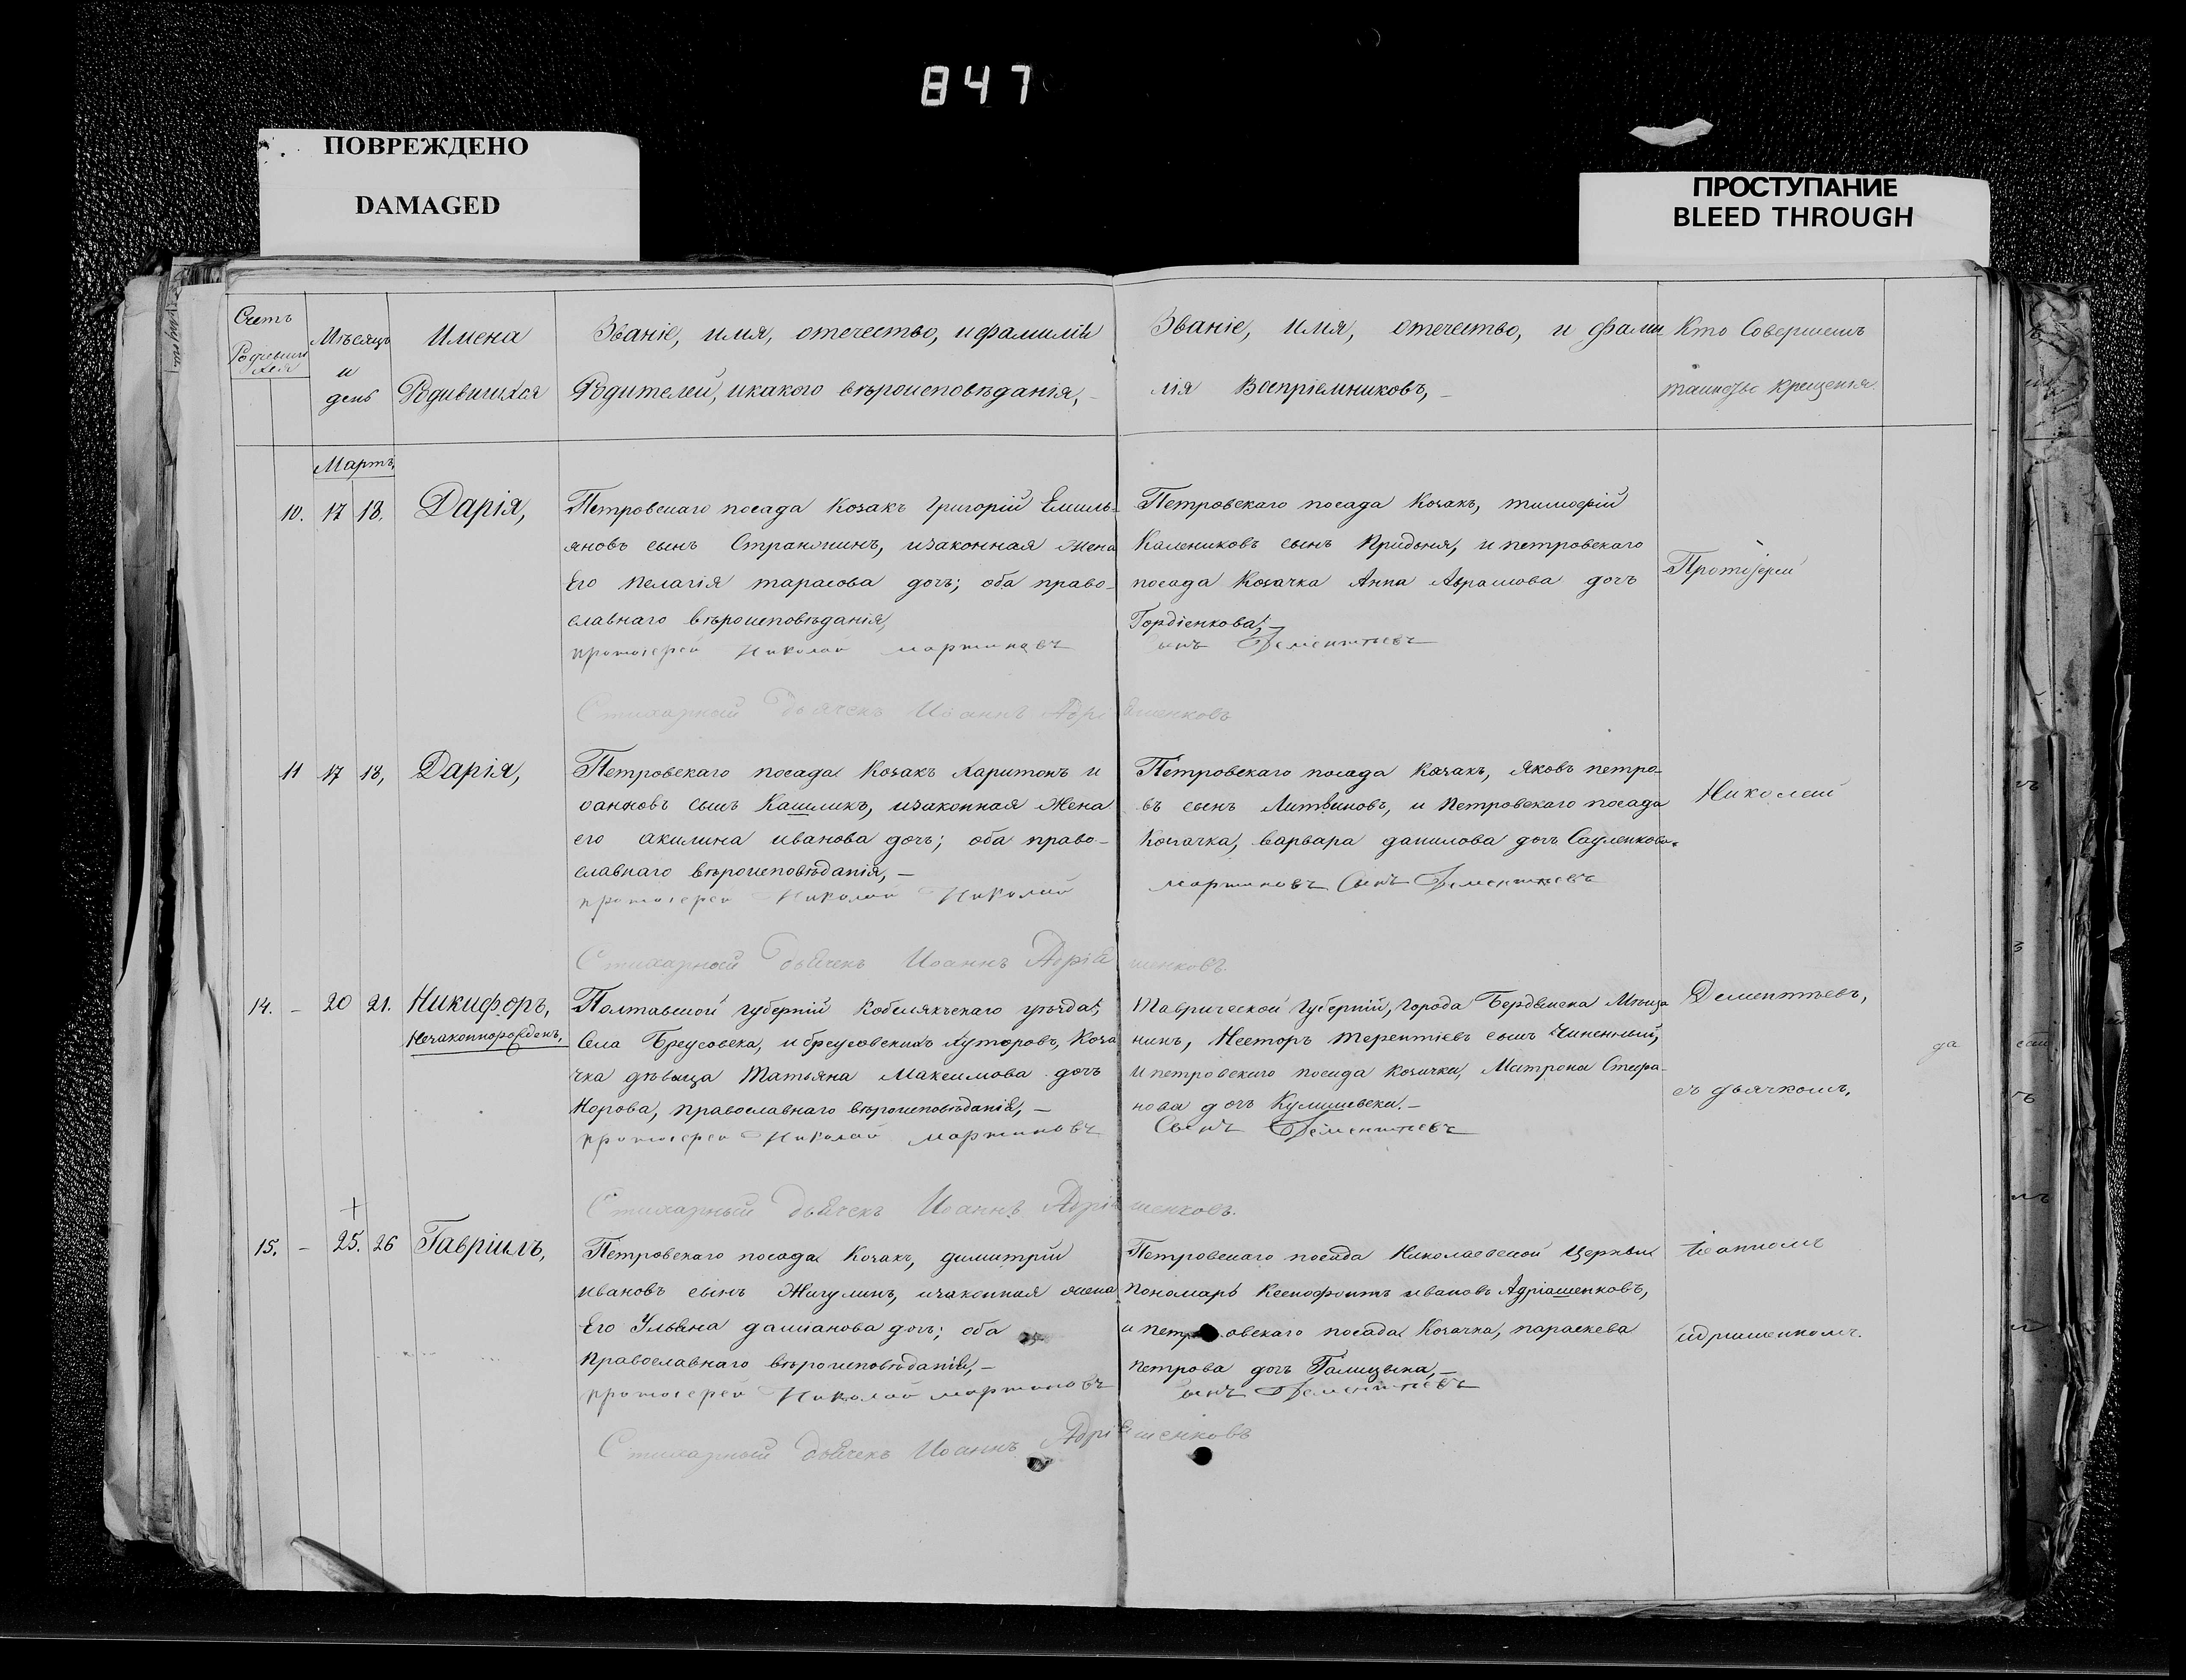 847
ПОВРЕЖДЕНО
DAMAGED
ПРОСТУПАНИЕ
BLEED THROUGH
Счетъ
Мѣсяцъ
и
день
Имена
Родившихся
Званіе, имя, отечество, и фамиліи
Родителей, и какого вѣроисповѣданія,
Званіе, имя, отечество, и фами
лія Воспріемниковъ,
Кто Совершилъ
таинство крещенія.
Мартъ,
10. 17 18. Дарія,
Петровскаго посада Козакъ Григорій Емиль-
яновъ сынъ изаконная Жена
Его Пелагія тарасова дочь; оба право-
славнаго вѣроисповѣданія,
протоіерей Николай мартиновъ
Петровскаго посада Козакъ, тимофій
Калениковъ сынъ Придыня, и петровскаго
посада Козачка Анна Аврамова дочь
Гордіенкова,
сынъ Дементіевъ
Протоіерей
Стихарный дьячекъ Иоаннъ Адріашенковъ
11 17 18, Дарія,
Петровскаго посада Козакъ Харитонъ и
оанновъ сынъ Кашликъ, изаконная Жена
его акилина иванова дочь; оба право-
славнаго вѣроисповѣданія,
протоіерей Николай Николай
Петровскаго посада Козакъ, Яковъ петро-
въ сынъ Литвиновъ, и Петровскаго посада
Козачка, варвара данилова дочь
мартиновъ Сынъ Дементіевъ
Николай
Стихарный дьячекъ Иоаннъ Адріашенковъ.
14. – 20 21. Никифоръ,
Незаконнорожденъ,
Полтавской губерній Кобелякскаго уѣзда,
Села Бреусовека, и бреусовскихъ Хуторовъ, Коза
чка дѣвица Татьяна Максимова дочь
Морова, православнаго вѣроисповѣданія,
протоіерей Николай мартиновъ
Таврической Губерній, города Бердянска Мѣща
нинъ, Несторъ Терентіевъ сынъ
и петровскаго посада Козачка, Матрона Стефа-
нова дочь
Сынъ Дементіевъ
Дементьевъ,
съ дьячкомъ,
да
Стихарный дьячекъ Иоаннъ Адріашенковъ.
15. – 25. 26 Гавріилъ,
Петровскаго посада Козакъ, димитрій
ивановъ сынъ Жигулинъ, изаконная жена
Его Ульяна даміанова дочь; оба
Православнаго вѣроисповѣданія,
протоіерей Николай мартиновъ
Петровскаго посада Николаевской Церквы
Пономарь Ксенофонтъ ивановъ Адріашенковъ,
и петровскаго посада Козачка, параскева
петрова дочь Галицына,
сынъ Дементіевъ
Іоанномъ
адріашенкомъ.
Стихарный дьячекъ Иоаннъ Адріашенковъ